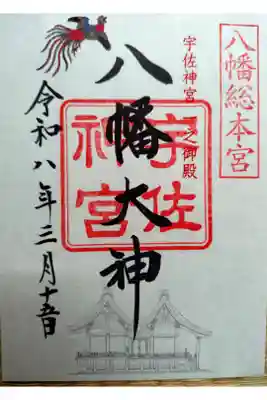 八幡総本宮
宇佐神宮 之御殿
八幡大神
宇佐神宮
令和八年三月十五日